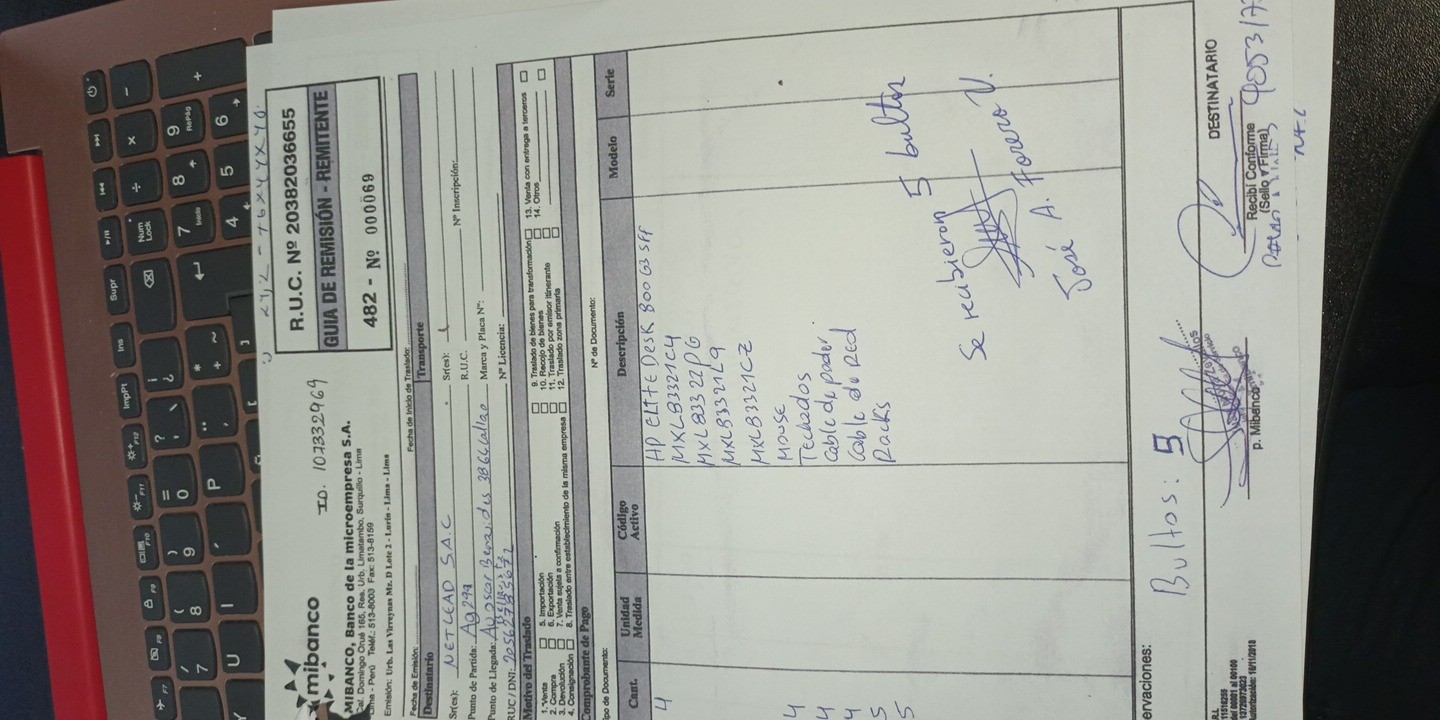 mibanco
ID. 107332969
MIBANCO, Banco de la microempresa S.A.
Cal. Domingo Orué 165, Res. Urb. Limatambo, Surquillo - Lima
Lima - Perú Teléf.: 513-8003 Fax: 513-8159
Emisión: Urb. Las Virreynas Mz. D Lote 2 - Lurín - Lima - Lima
R.U.C. Nº 20382036655
GUIA DE REMISIÓN - REMITENTE
482 - Nº 000069
Fecha de Emisión:
Fecha de Inicio de Traslado:
Destinatario
Transporte
Sr(es): NETLEAD S.A.C
Sr(es):
Punto de Partida: Ag 297
R.U.C.
Nº Inscripción:
Punto de Llegada: Av Oscar Benavides 3866 Callao
Marca y Placa Nº:
RUC / DNI:
Nº Licencia:
Motivo del Traslado
1. Venta
2. Compra
3. Devolución
4. Consignación
5. Importación
6. Exportación
7. Venta sujeta a confirmación
8. Traslado entre establecimiento de la misma empresa
9. Traslado de bienes para transformación
10. Recojo de bienes
11. Traslado por emisor itinerante
12. Traslado zona primaria
13. Venta con entrega a terceros
14. Otros
Comprobante de Pago
ipo de Documento:
Nº de Documento:
Cant. Unidad Medida Código Activo Descripción Modelo Serie
4 HP ELITE Desk 800 G3 SFF
MXL83321C4
MXL83322PG
MXL83321L9
MXL83321CZ
4 Mouse
4 Techados
4 Cable de poder
5 Cable de RED
5 Packs
Se recibieron 5 bultos
José A. Forero V.
ervaciones:
Bultos: 5
p. Mibanco
DESTINATARIO
Recibí Conforme
(Sello y Firma)
Autorización: 16/11/2018